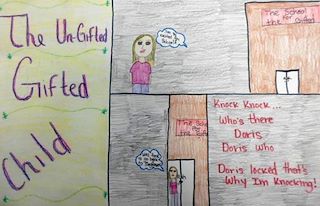 The Un-Gifted
Gifted
Child
The School
For
the Gifted
Knock Knock...
Who's there
Doris
Doris who
Doris locked that's
Why I'm knocking!